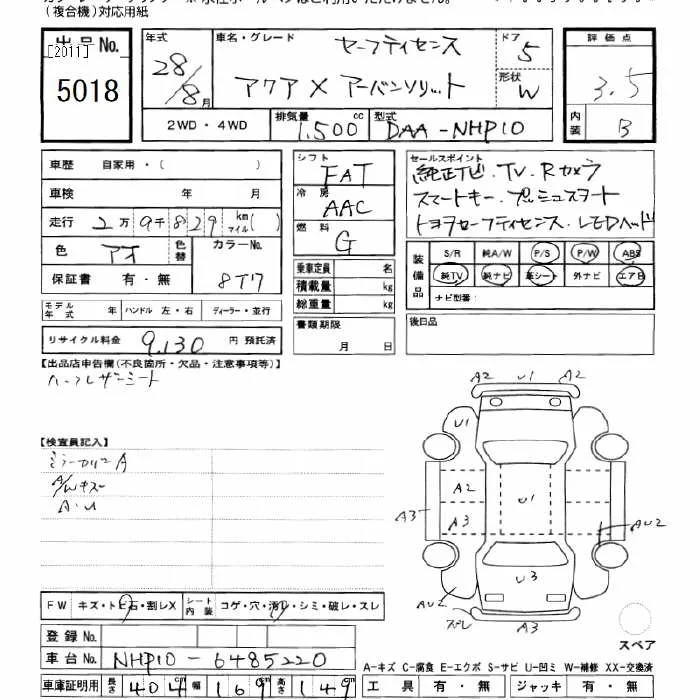 (複合機)対応用紙
出品No.
[2011]
5018
年式 28/8月
車名・グレード セーフティセンス
アクア X アーバンソリッド
ドア 5
形状 W
評価点 3.5
内装 B
2WD・4WD
排気量 1.500cc
型式 DAA-NHP10
車歴 自家用・( )
車検 年 月
走行 2万9千829km マイル( )
色 アオ 色替 カラーNo. 8T7
保証書 有・無
シフト FAT
冷房 AAC
燃料 G
乗車定員 名
積載量 kg
総重量 kg
書類期限
月 日
セールスポイント
純正ナビ.TV.Rカメラ
スマートキー.プッシュスタート
トヨタセーフティセンス.LEDヘッド
装備品 S/R 純A/W P/S P/W ABS
純TV 純ナビ 革シート 外ナビ エアB
ナビ型番:
後日品
モデル年式 年 ハンドル 左・右 ディーラー・並行
リサイクル料金 9,130 円 預託済
【出品店申告欄(不良箇所・欠品・注意事項等)】
ハーフレザーシート
【検査員記入】
ミラーカバーA
A/Wキズ
A.U
A2 U1 A2
A2
U1
A3
A3
AU2
U3
AU2
ズレ
A3
FW キズ・トビ石・割レX シート内装 コゲ・穴・汚レ・シミ・破レ・スレ
スペア
登録No.
車台No. NHP10-6485220
A-キズ C-腐食 E-エクボ S-サビ U-凹ミ W-補修 XX-交換済
車庫証明用 長さ 404cm 幅 169cm 高さ 149cm
工具 有・無 ジャッキ 有・無